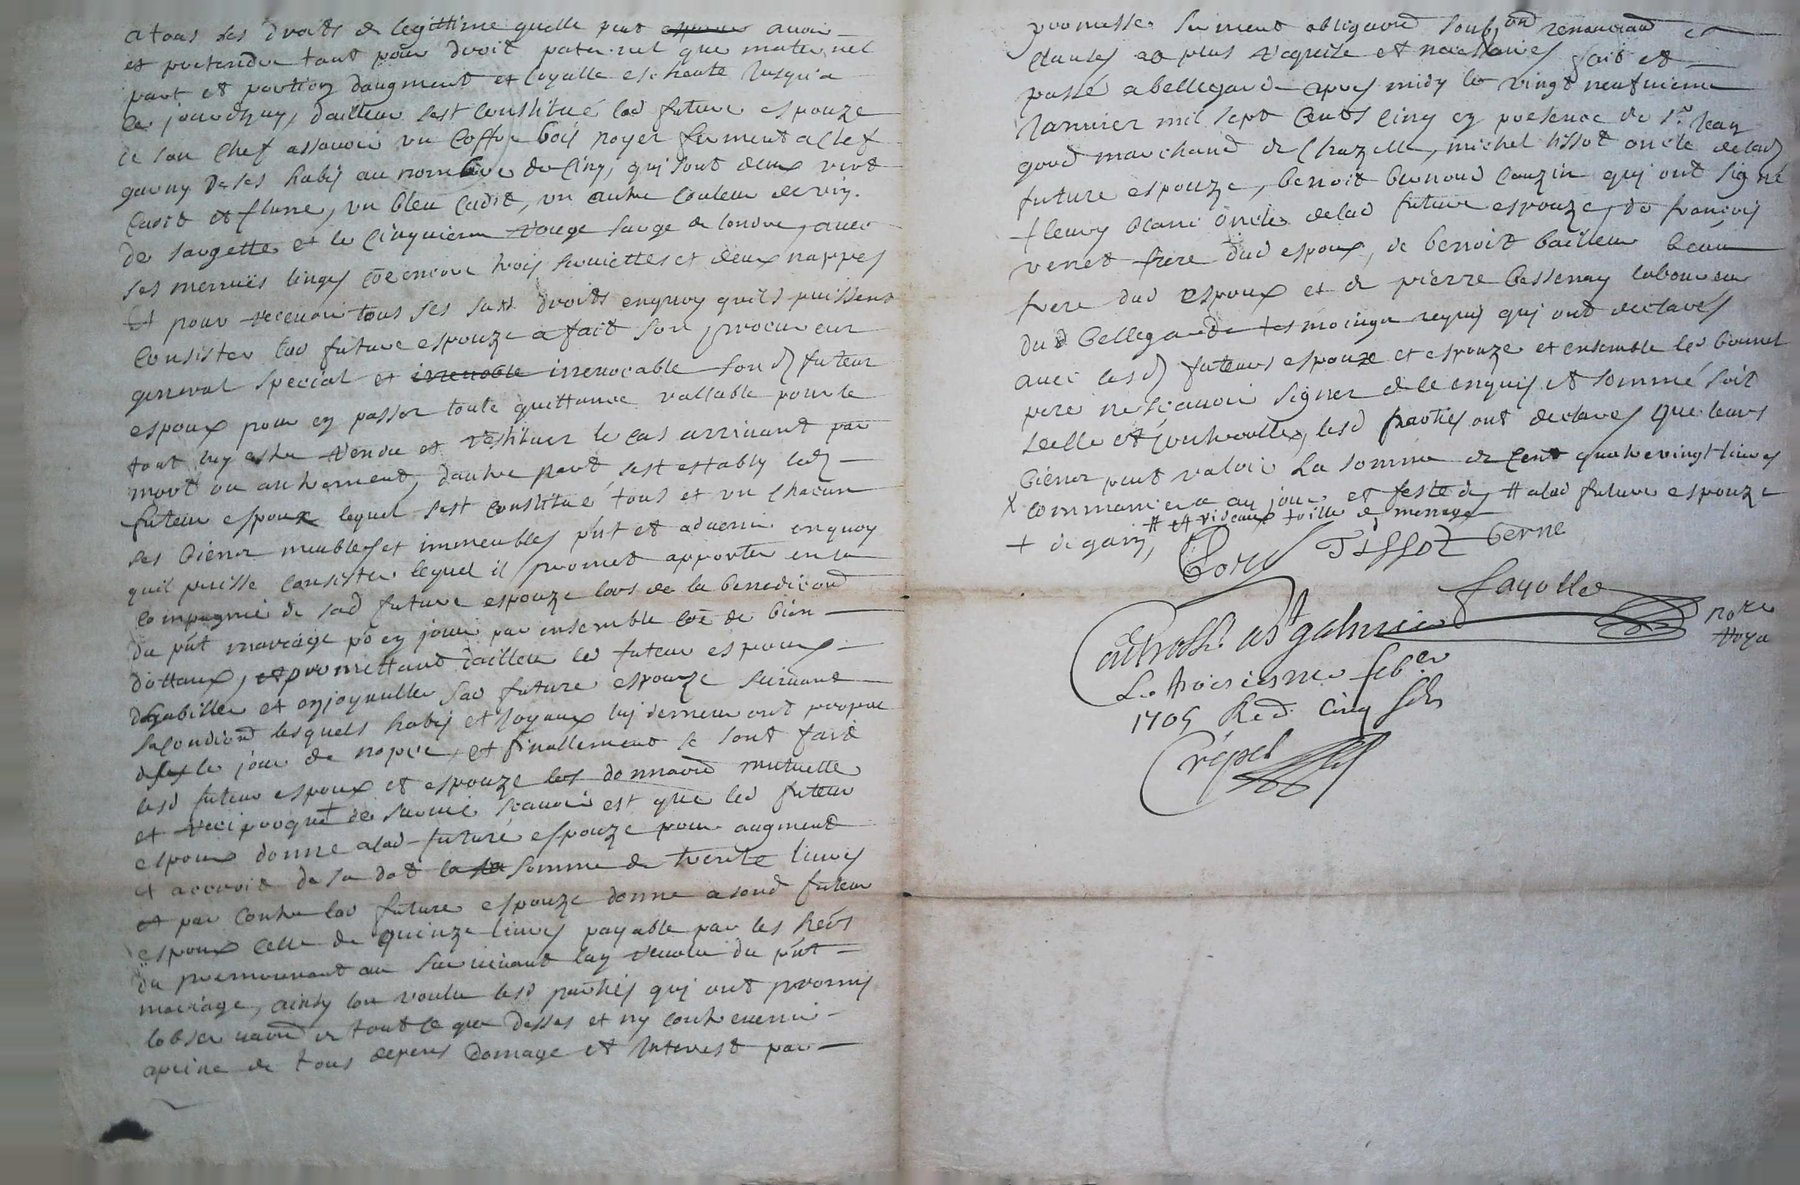 a tous ses droits de legittime quelle peut espouse avoir
et pretendre tant pour droit paternel que maternel
part et portion daugment et loyalle escheute Jusqu'a
ce jourdhuy, dailleur sest constitué lad future espouze
de son chef assavoir un coffre bois noyer ferment a clef
garny de ses habis au nombre de cinq, qui sont deux vert
cadit et flune, un bleu cadit, un autre couleur de vin
de sargette et le cinquieme rouge sarge de londre, avec
ses menuës linges coe encore trois serviettes et deux nappes
Et pour recevoir tous ses susd droits enquoy quils puissent
consister lad future espouze a fait son procureur
general special et irrevoble irrevocable sond futur
espoux pour en passer toute quittance vallable pour le
tout luy estre rendu et restituer le cas arrivant par
mort ou autrement, dautre part sest estably led
futeur espoux lequel sest constitué tous et un chacun
ses biens meubles et immeubles pnt et advenir enquoy
quil puisse consister lequel il promet apporter en la
compagnie de sad future espouze lors de la benediond
du pnt mariage po en jouir par ensemble coe de bien
dottaux, et promettant dailleur led futeur espoux
dhabiller et enjoyaller sad future espouze suivant
sa conditiond lesquels habis et joyaux luy demeureront propre
des le jour de nopce, et finallement se sont fait
lesd futeur espoux et espouze les donnaond mutuelle
et reciproque de survie scavoir est que led futeur
espoux donne a lad future espouze pour augment
et accroit de sa dot la sa somme de trente livres
et par contre lad future espouze donne a sond futeur
espoux celle de quinze livres payable par les heërs
du premourant au survivant lay revolu du pnt
mariage, ainsy lon voulu lesd parties qui ont promis
lobservaond de tout ce que desses et ny contrevenir
a peine de tous depens domage et Interest par
promesse serment obligaond soub on renonciaond et
clauses au plus requise et necessaires fait et
passé a bellegarde apres midy le vingt neufvieme
Janvier mil sept Cents Cinq en presence de sr Jean
goud marchand de Chazelle, michel tissot oncle de lad
future espouze, benoit bernoud couzin qui ont signé
fleury blanc oncle de lad future espouze, de françois
venet frere dud espoux, de benoit bailleur beau
frere dud espoux et de pierre bassenay laboureur
dud bellegarde tesmoingn requis qui ont declarés
avec lesd futeurs espouze et espouze et ensemble led bonnet
pere ne scavoir signer de ce enquis et sommé soit
scelle et controolle, lesd parties ont declarés que leurs
biens peut valoir la somme de cent quatrevingt livres
x commancera au jour et feste de # a lad future espouze
# et rideaux toille de menage
+ de garn,
Gord Tissot berne
fayolle
nore
Roya
Controlle a St galmier
Le troisiesme feber
1705 Red. cinq sols
Crépet